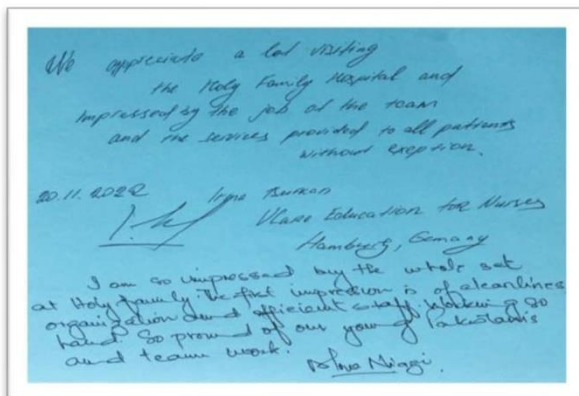 We appreciate a lot visiting
the Holy Family Hospital and
Impressed by the job of the team
and the services provided to all patients
without exeption.
20.11.2022 Irma
VCare Education for Nurses
Hamburg, Gemany
I am so impressed by the whole set
at Holy family. The first impression is of cleanlines
organization and efficient staff. Working so
hard. So proud of our young Pakistanis
and team work.
Niazi.